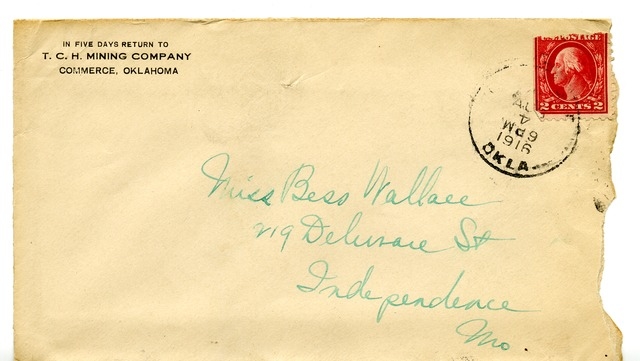 IN FIVE DAYS RETURN TO
T. C. H. MINING COMPANY
COMMERCE, OKLAHOMA
POSTAGE
2 CENTS 2
4
6 PM
1916
OKLA
Miss Bess Wallace
219 Delaware St
Independence
Mo.